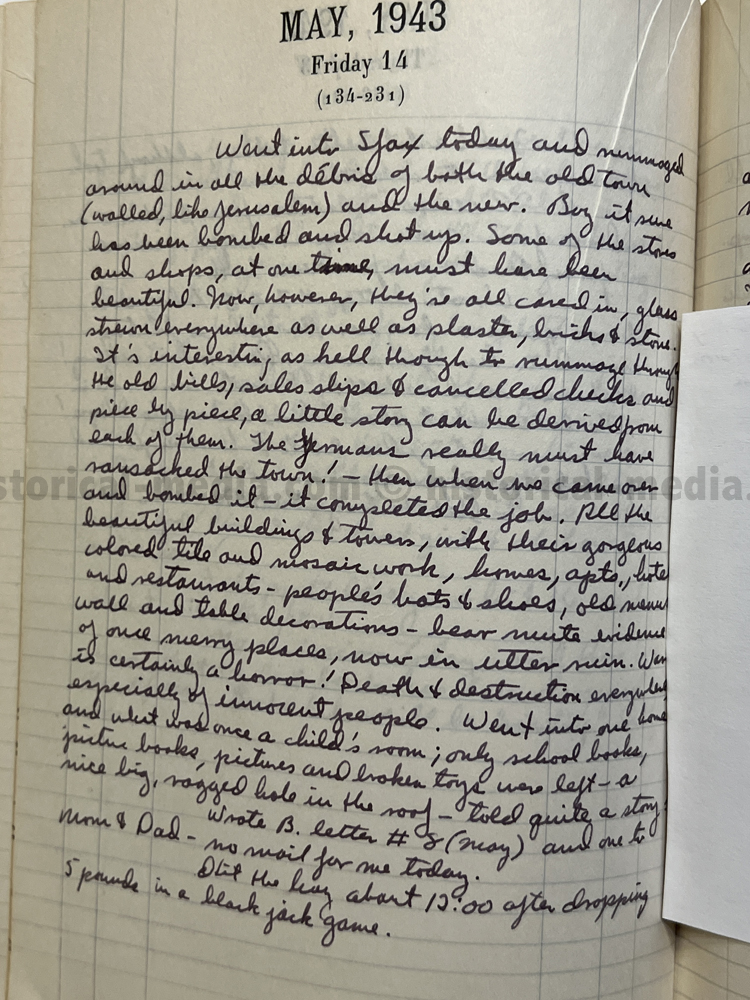 MAY, 1943
Friday 14
(134-231)
Went into Sfax today and rummaged
around in all the débris of both the old town
(walled, like Jerusalem) and the new. Boy it sure
has been bombed and shot up. Some of the stores
and shops, at one time, must have been
beautiful. Now, however, they're all caved in, glass
strewn everywhere as well as plaster, bricks & stone.
It's interesting as hell though to rummage through
the old bills, sales slips & cancelled checks and
piece by piece, a little story can be derived from
each of them. The Germans really must have
ransacked the town! - then when we came over
and bombed it - it completed the job. All the
beautiful buildings & towers, with their gorgeous
colored tile and mosaic work, homes, apts., hotels
and restaurants - people's hats & shoes, old menus
wall and table decorations - bear mute evidence
of once merry places, now in utter ruin. War
is certainly a horror! Death & destruction everywhere
especially of innocent people. Went into one home
and what was once a child's room; only school books,
picture books, pictures and broken toys were left - a
nice big, ragged hole in the roof - told quite a story.
Wrote B. letter # 8 (May) and one to
Mom & Dad - no mail for me today.
Hit the hay about 12:00 after dropping
5 pounds in a black jack game.